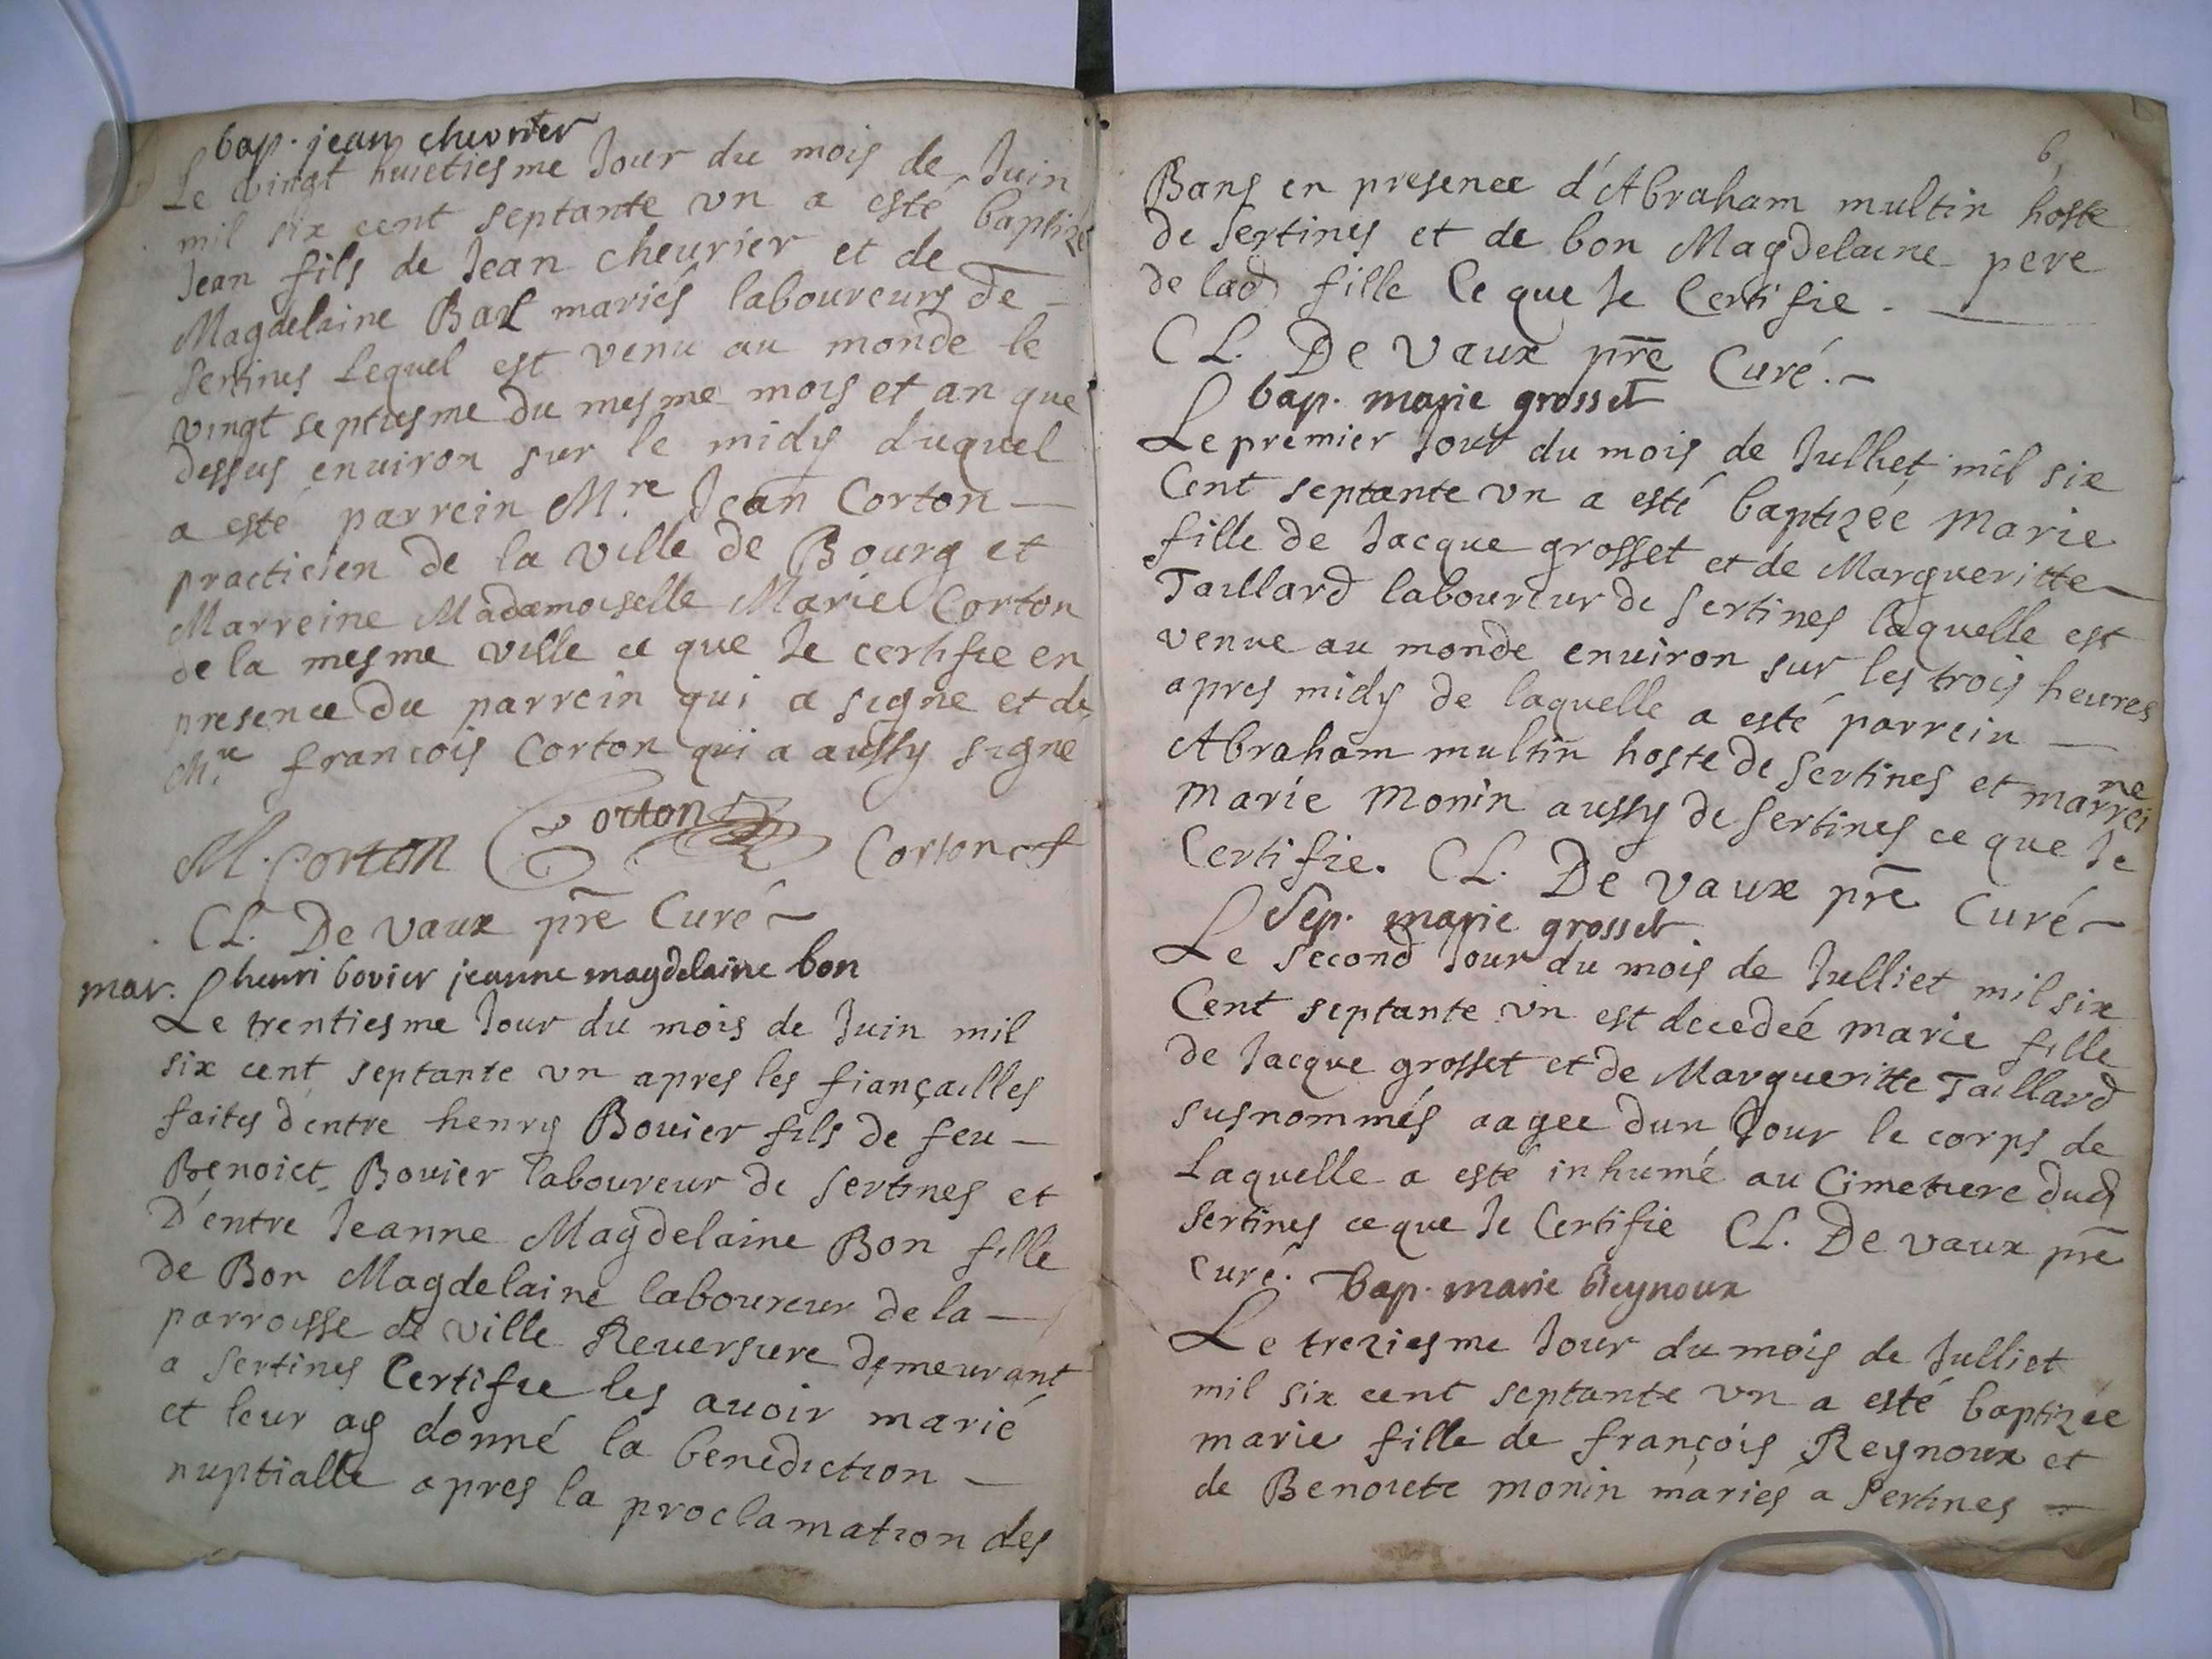 bap. jean chevrier
Le vingt huictiesme Jour du mois de Juin
mil six cent septante vn a esté baptizé
Jean fils de Jean cheurier et de
Magdelaine Bal mariés laboureurs de
Sertines Lequel est venu au monde le
vingt septiesme du mesme mois et an que
dessus enuiron sur le midy duquel
a esté parrein M.re Jean Corton
practicien de la ville de Bourg et
Marreine Madamoiselle Marie Corton
de la mesme ville ce que Je certifie en
presence du parrein qui a signe et de
M.re francois Corton qui a aussy signe
M. Corton Corton Corton
CL. De Vaux pre Curé
mar. henri bovier jeanne magdelaine bon
Le trentiesme Jour du mois de Juin mil
six cent septante vn apres les fiançailles
faites d'entre henry Bouier fils de feu
Benoict Bouier laboureur de Sertines et
D'entre Jeanne Magdelaine Bon fille
de Bon Magdelaine laboureur de la
parroisse de ville Reuersure demeurant
a Sertines Certifie les auoir marié
et leur ay donné la benediction
nuptialle apres la proclamation des
6
Bans en presence d'Abraham multin hoste
de Sertines et de bon Magdelaine pere
de lad fille Ce que Je Certifie.
CL. De Vaux pre Curé.
bap. marie grosset
Le premier Jour du mois de Julliet mil six
Cent septante vn a esté baptizée Marie
fille de Jacque grosset et de Margueritte
Taillard laboureur de Sertines laquelle est
venue au monde enuiron sur les trois heures
apres midy de laquelle a esté parrein
Abraham multin hoste de Sertines et marreine
Marie Monin aussy de Sertines ce que Je
Certifie. CL. De Vaux pre Curé
Sep. marie grosset
Le second Jour du mois de Julliet mil six
Cent septante vn est decedeé marie fille
de Jacque grosset et de Margueritte Taillard
susnommés aagee dun Jour le corps de
Laquelle a esté inhumé au Cimetiere dud
Sertines ce que Je Certifie CL. De vaux pre
Curé. bap. marie Reynoux
Le treziesme Jour du mois de Julliet
mil six cent septante vn a esté baptizée
marie fille de françois Reynoux et
de Benoicte monin mariés a Sertines